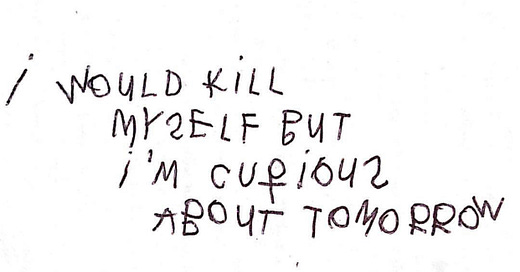 i WOULD KiLL
MYSELF BUT
i'M CURiOUS
ABOUT TOMORROW